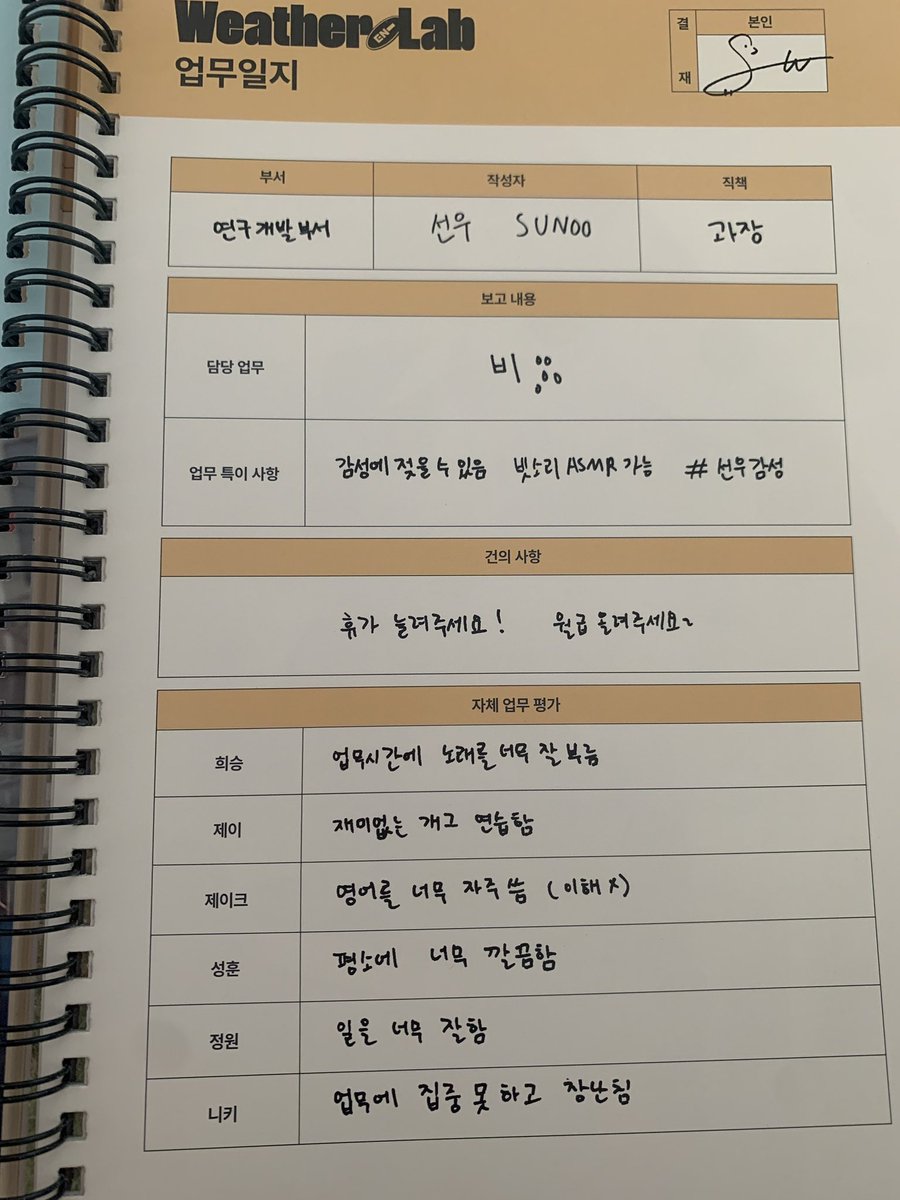 Weather EN- Lab
업무일지
결재 본인
부서 작성자 직책
연구개발부서 선우 SUNOO 과장
보고 내용
담당 업무 비
업무 특이 사항 감성에 젖을 수 있음 빗소리 ASMR 가능 #선우감성
건의 사항
휴가 늘려주세요! 월급 올려주세요~
자체 업무 평가
희승 업무시간에 노래를 너무 잘 부름
제이 재미없는 개그 연습함
제이크 영어를 너무 자주 씀 (이해 X)
성훈 평소에 너무 깔끔함
정원 일을 너무 잘함
니키 업무에 집중 못 하고 장난침